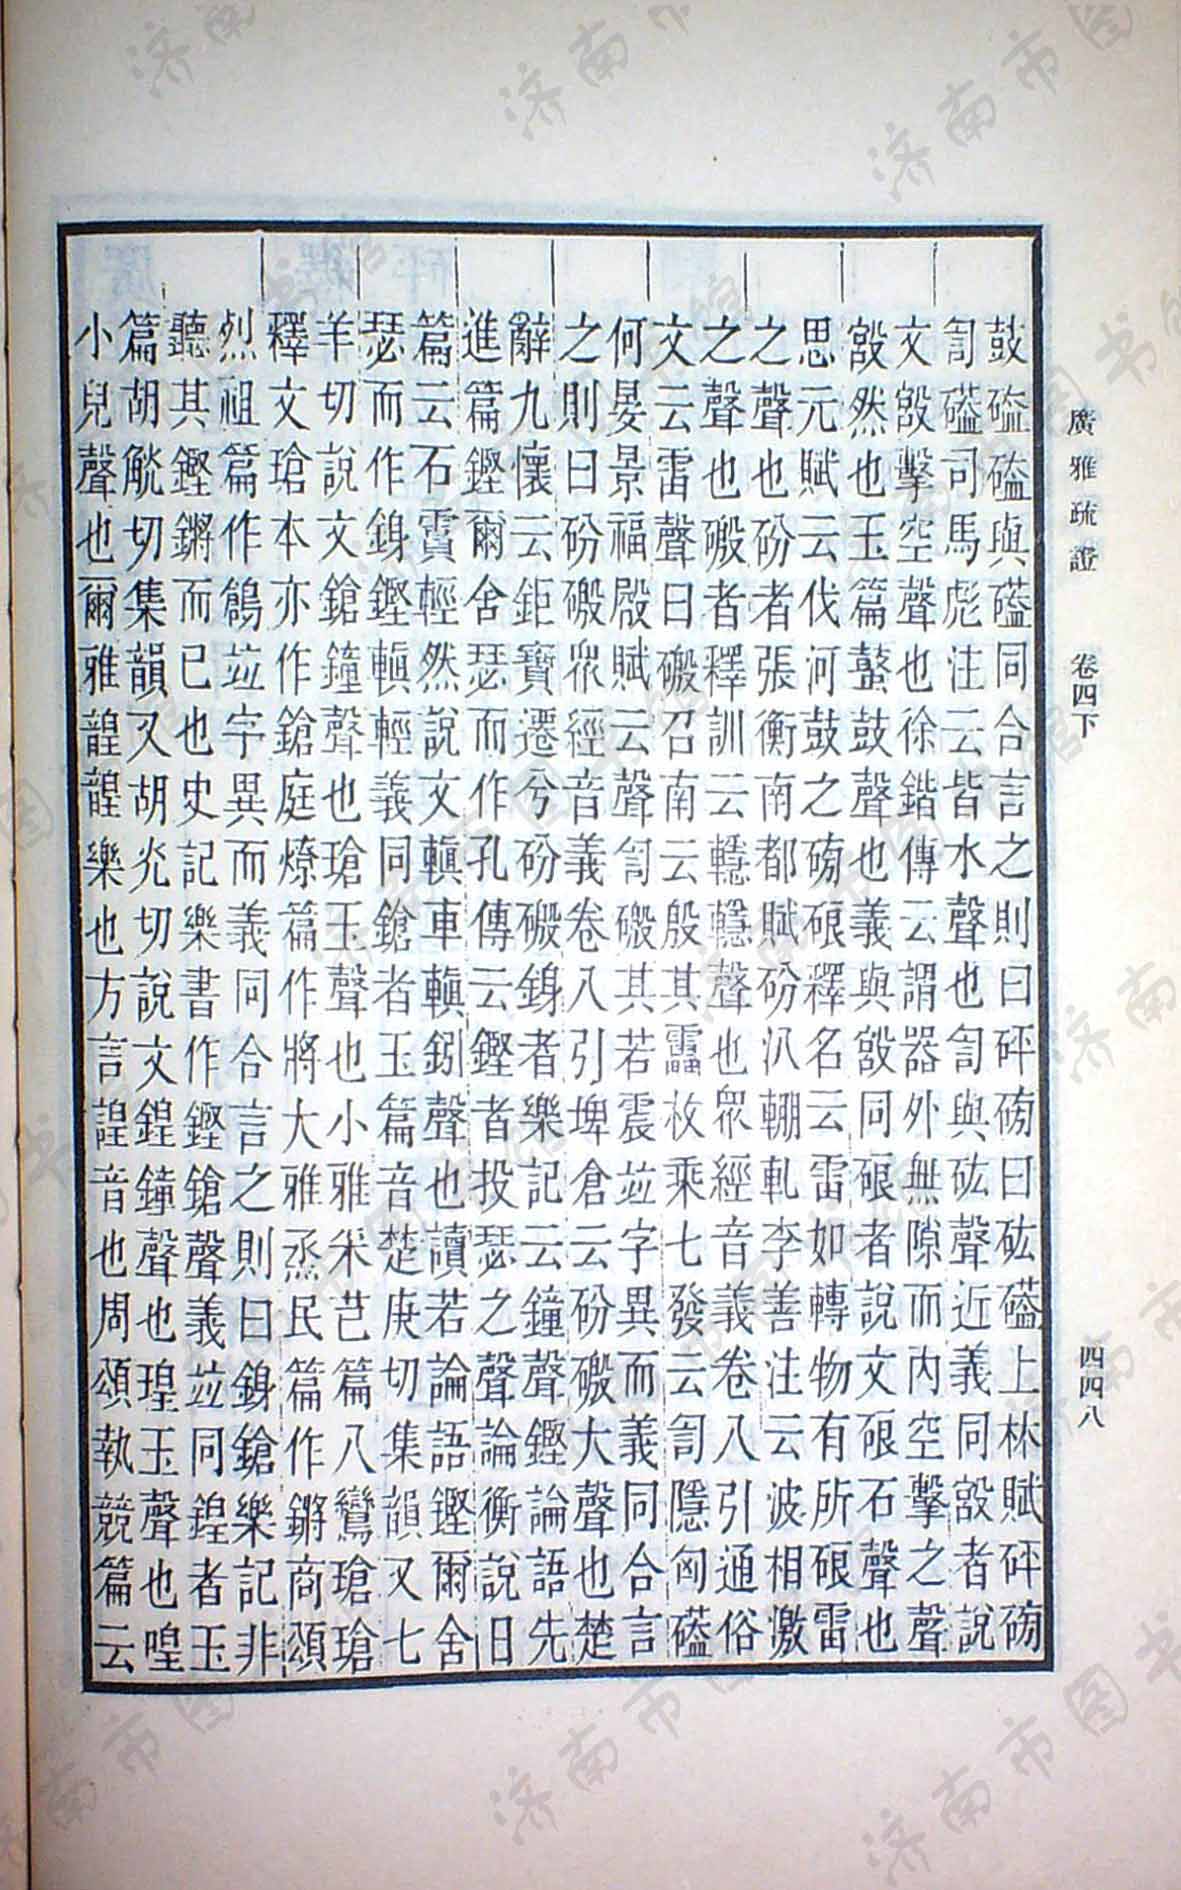 鼓磕磕與礚同合言之則曰砰磅曰礚上林賦砰磅
訇礚司馬彪注云皆水聲也訇與聲近義同者說
文擊空聲也徐鍇傳云謂器外無隙而內空擊之聲
然也玉篇鼓聲也義與同硠者說文硠石聲也
思元賦云伐河鼓之磅硠釋名云雷如轉物有所硠雷
之聲也砏者張衡南都賦砏汃輣軋李善注云波相激
之聲也磤者釋訓云聲也眾經音義卷八引通俗
文云雷聲曰磤召南云殷其靁枚乘七發云訇隱匈礚
何晏景福殿賦云聲訇磤其若震竝字異而義同合言
之則曰砏磤眾經音義卷八引埤倉云砏磤大聲也楚
辭九懷云鉅寶遷兮砏磤者樂記云鐘聲鏗論語先
進篇鏗爾舍瑟而作孔傳云鏗者投瑟之聲論衡說日
篇云石霣輕然說文䡩車䡩鈏聲也讀若論語鏗爾舍
瑟而作鏗䡩輕義同鎗者玉篇音楚庚切集韻又七
羊切說文鎗鐘聲也瑲玉聲也小雅采芑篇八鸞瑲瑲
釋文瑲本亦作鎗庭燎篇作將大雅烝民篇作鏘商頌
烈祖篇作鶬竝字異而義同合言之則曰鎗樂記非
聽其鏗鏘而已也史記樂書作鏗鎗聲義竝同鍠者玉
篇胡觥切集韻又胡光切說文鍠鐘聲也瑝玉聲也喤
小兒聲也爾雅韹韹樂也方言諻音也周頌執競篇云
廣雅疏證　卷四下　四四八